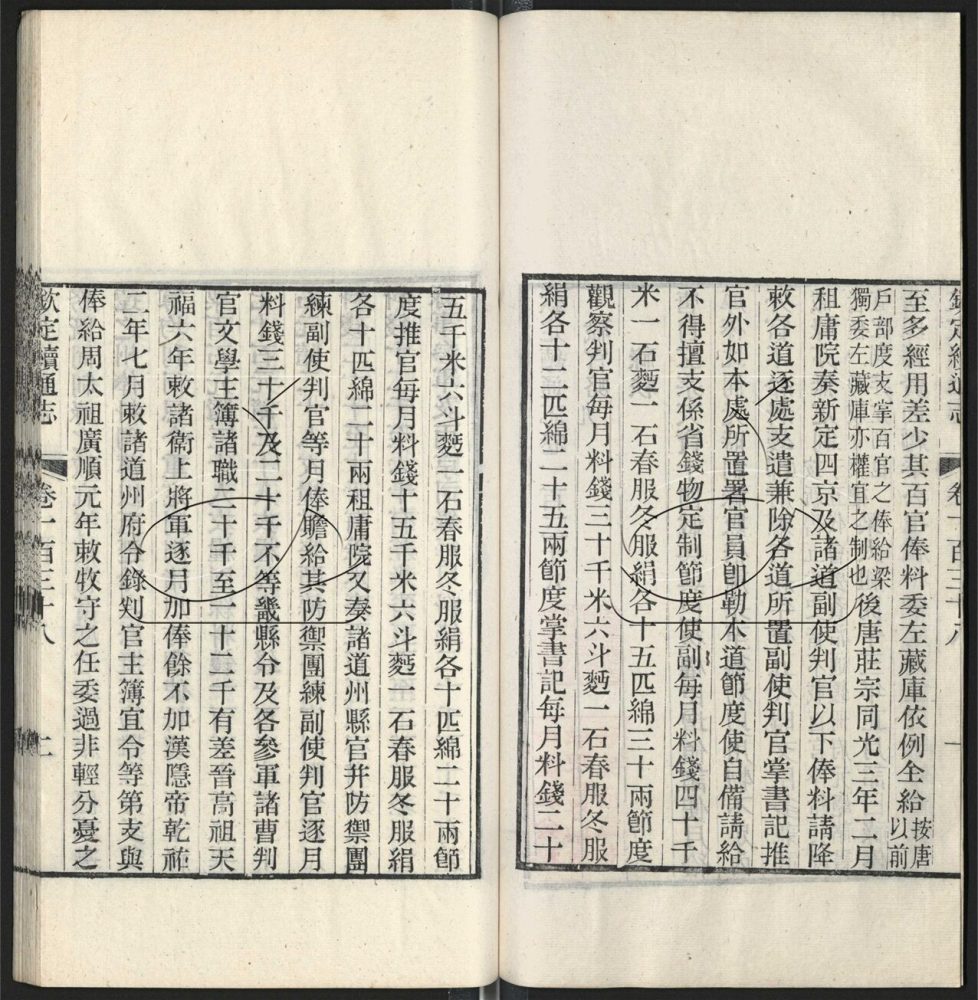 欽定續通志 卷一百三十八 一
至多經用差少其百官俸料委左藏庫依例全給按唐以前
戶部度支掌百官之俸給梁獨委左藏庫亦權宜之制也後唐莊宗同光三年二月
租庸院奏新定四京及諸道副使判官以下俸料請降
敕各道逐處支遣兼除各道所置副使判官掌書記推
官外如本處所置署官員卽勒本道節度使自備請給
不得擅支係省錢物定制節度使副每月料錢四十千
米一石麪一石春服冬服絹各十五匹綿三十兩節度
觀察判官每月料錢三十千米六斗麪一石春服冬服
絹各十二匹綿二十五兩節度掌書記每月料錢二十
五千米六斗麪一石春服冬服絹各十匹綿二十兩節
度推官每月料錢十五千米六斗麪一石春服冬服絹
各十匹綿二十兩租庸院又奏諸道州縣官幷防禦團
練副使判官等月俸贍給其防禦團練副使判官逐月
料錢三十千及二十千不等畿縣分及各參軍諸曹判
官文學主簿諸職二十千至一十二千有差晉高祖天
福六年敕諸衞上將軍逐月加俸餘不加漢隱帝乾祐
二年七月敕諸道州府令錄判官主簿宜令等第支與
俸給周太祖廣順元年敕牧守之任委遇非輕分憂之
欽定續通志 卷一百三十八 二